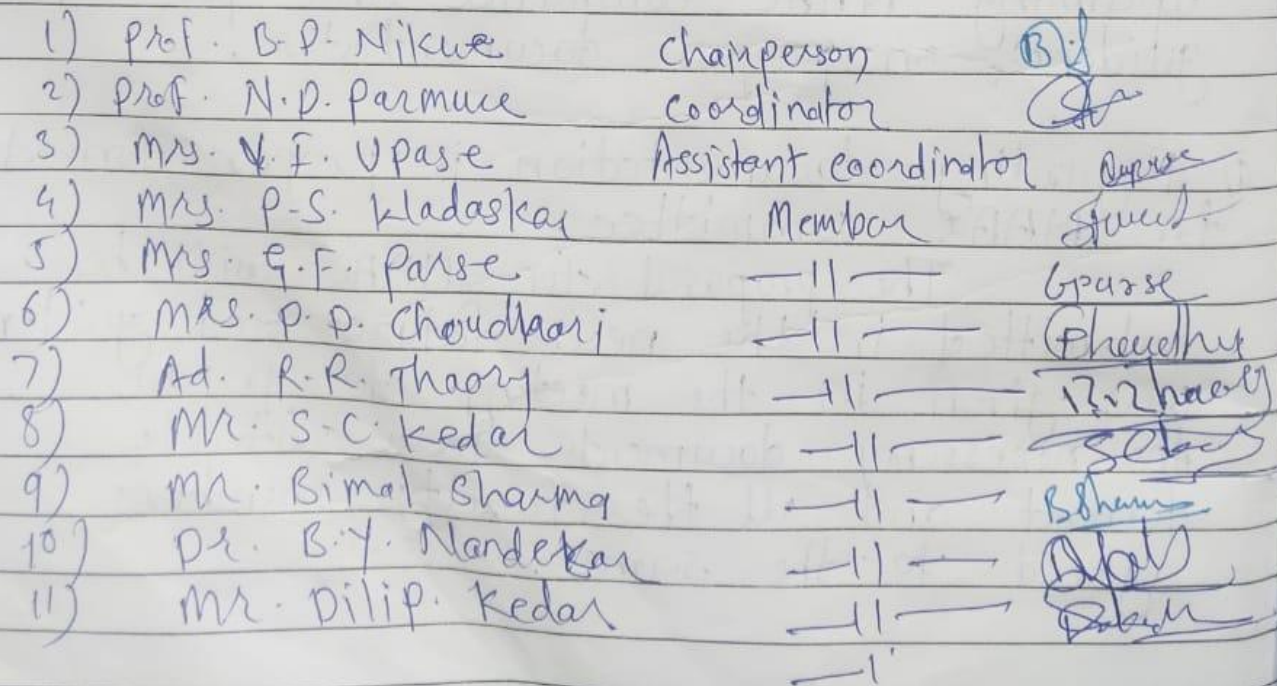 1) Prof. B.P. Nikure Chairperson
2) Prof. N.D. Parmuce Coordinator
3) Mrs V. I. Upase Assistant coordinator
4) Mrs. P.S. Hadaskar Membar
5) Mrs. G.F. Parse —11— Gparse
6) Mrs. P.D. Choudhari —11—
7) Ad. R.R. Thaory —11—
8) Mr. S.C. Kedar —11—
9) Mr. Bimal Sharma —11— BSharm
10) Dr. B.Y. Nandekar —11—
11) Mr. Dilip. Kedar —11—
—1